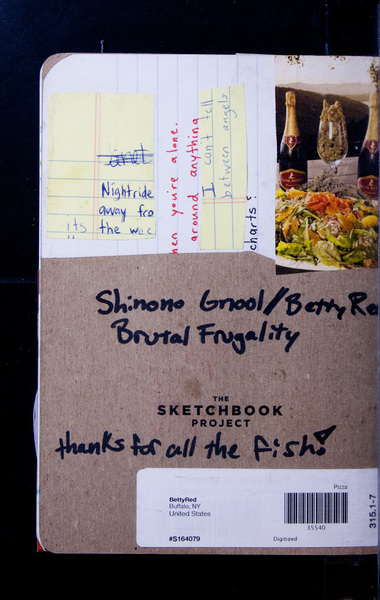 Nightride
away fro
its the wac
hen you're alone.
around anything
I can't tell
between angels
charts?
Shinono Gnool//BettyRe
Brutal Frugality
THE
SKETCHBOOK
PROJECT
thanks for all the fish!
Pizza
BettyRed
Buffalo, NY
United States
35540
#S164079
Digitized
315.1-7